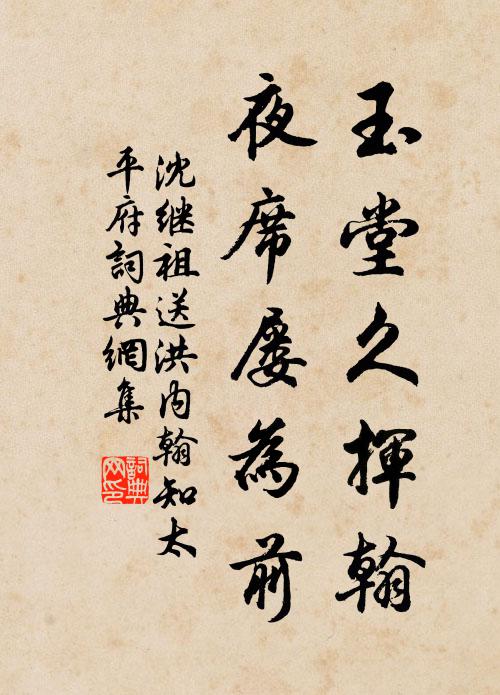 玉堂久揮翰
夜席屡為前
沈继祖送洪内翰知太
平府詞典網集
詞典
网印